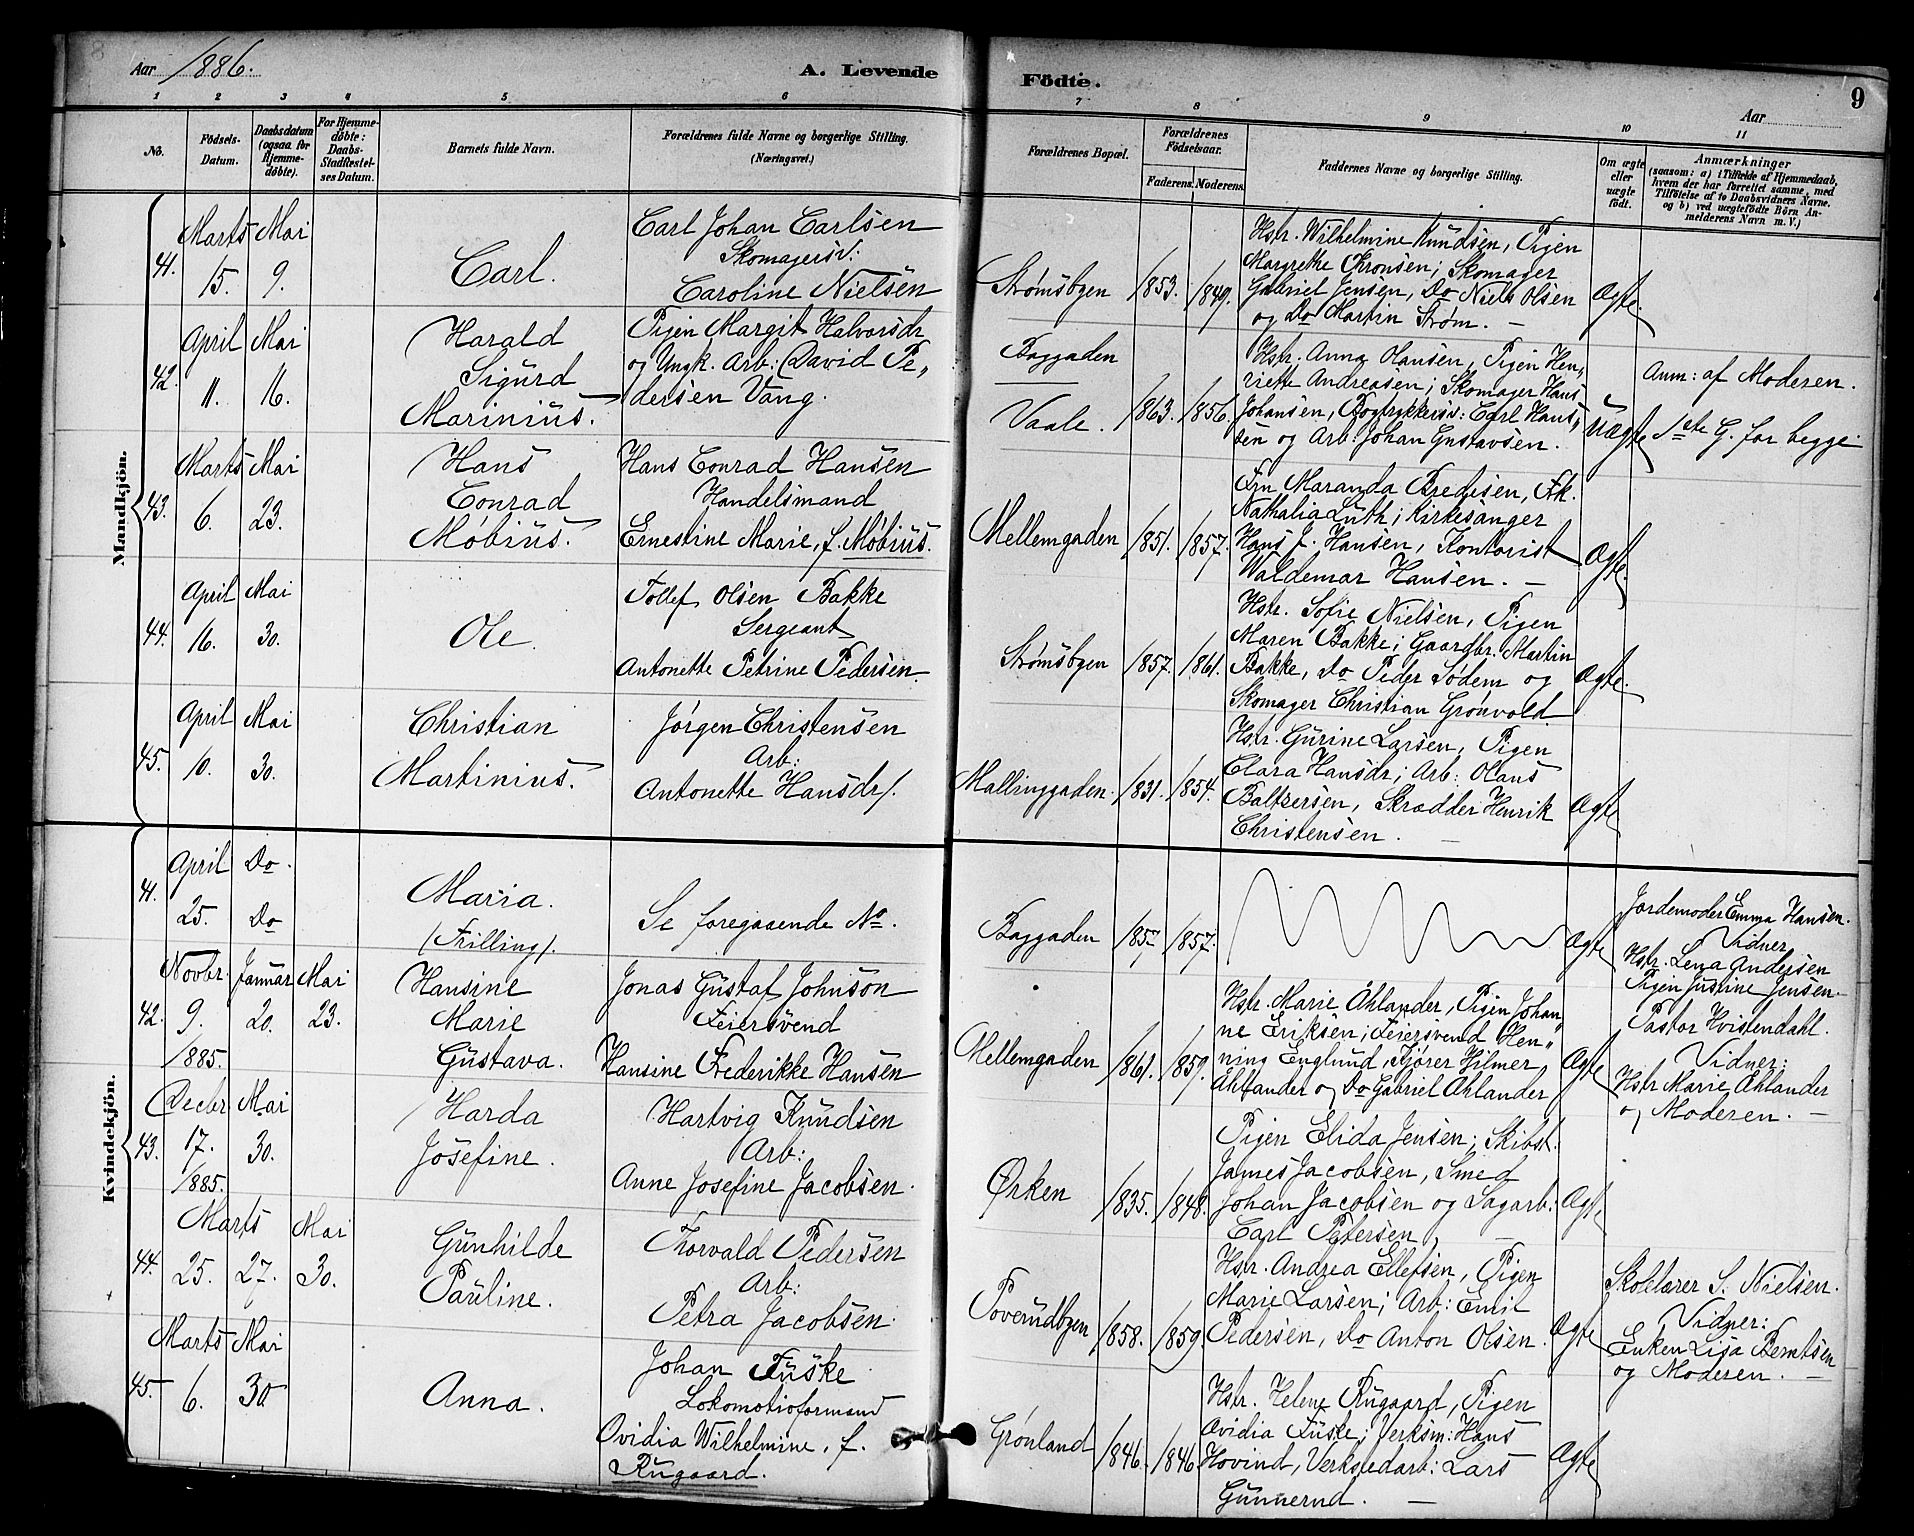 8
Aar 1886.
A. Levende
Födte.
9
Aar
1 2 3 4 5 6 7 8 9 10 11
No.
Födsels-Datum.
Daabsdatum (ogsaa for Hjemmedöbte).
For Hjemmedöbte: Daabs-Stadfestelses Datum.
Barnets fulde Navn.
Forældrenes fulde Navne og borgerlige Stilling.
(Næringsvei.)
Forældrenes Bopæl.
Forældrenes Födselsaar.
Faderens. Moderens.
Faddernes Navne og borgerlige Stilling.
Om ægte eller uægte födt.
Anmærkninger
(saasom: a) i Tilfælde af Hjemmedaab,
hvem der har forrettet samme, med
Tilföielse af to Daabsvidners Navne.
og b) ved uægtefödte Börn An-
melderens Navn m. V.)
Mandkjön.
41.
Marts 15.
Mai 9.
Carl.
Carl Johan Carlsen
Skomagersv:
Caroline Nielsen
Strømsbyen
1853. 1849.
Hstr. Wilhelmine Knudsen, Pigen
Margrethe Thronsen; Skomager
Gabriel Jensen, Do Niels Olsen
og Do Martin Strøm. —
Ægte.
42.
April 11.
Mai 16.
Harald
Sigurd
Marinius.
Pigen Margit Halvorsdr
og Ungk. Arb: David Pe,
dersen Vang.
Baggaden
Vaale.
1863. 1856.
Hstr. Anna Hansen, Pigen Hen,
riette Andreasen; Skomager Hans
Johansen, Bogtrykkersv: Carl Hans,
sen og Arb: Johan Gustavsen.
Uægte
Anm: af Moderen.
1ste G. for begge
43.
Marts 6.
Mai 23.
Hans
Conrad
Møbius.
Hans Conrad Hansen
Handelsmand
Ernestine Marie, f. Møbius.
Mellemgaden
1851. 1857.
Fru Maranda Bredesen, Frk.
Nathalia Luth; Kirkesanger
Hans J. Hansen, Kontorist
Waldemar Hansen. —
Ægte.
44.
April 16.
Mai 30.
Ole.
Tollef Olsen Bakke
Sergeant
Antonette Petrine Pedersen.
Strømsbyen
1857. 1861.
Hstr. Sofie Nielsen, Pigen
Maren Bakke; Gaardbr. Martin
Bakke, Do Peder Sødem og
Skomager Christian Grønvold
Ægte.
45.
April 10.
Mai 30.
Christian
Martinius.
Jørgen Christensen
Arb:
Antonette Hansdr.
Mallinggaden.
1831. 1854.
Hstr. Gurine Larsen, Pigen
Clara Hansdr; Arb: Olaus
Baltzersen, Skrædder Henrik
Christensen. —
Ægte
Kvindekjön.
41.
April 25.
Do Do
Maria.
(Trilling).
Se foregaaende No.
Baggaden
1857 1857.
Ægte
Jordemoder Emma Hansen.
Vidner
Hstr. Lena Andersen
Pigen Justine Jensen
42.
Novbr. 9. 1885.
Januar 20.
Mai 23.
Hansine
Marie
Gustava.
Jonas Gustaf Johnson
Feiersvend
Hansine Frederikke Hansen
Mellemgaden
1861. 1859.
Hstr. Marie Åhlander, Pigen Johan„
ne Eriksen; Feiersvend Hen„
ning Englund, Kjører Hilmer
Åhlander og Do Gabriel Åhlander
Ægte
Pastor Hvistendahl.
Vidner:
Hstr Marie Åhlander
og Moderen. —
43.
Decbr 17. 1885.
Mai 30.
Harda
Josefine.
Hartvig Knudsen
Arb:
Anne Josefine Jacobsen.
Ørken
1835. 1848.
Pigen Elida Jensen; Skibst.
James Jacobsen, Smed
Johan Jacobsen og Sagarb:
Carl Petersen, —
Ægte
44.
Marts 25. 27.
Mai 30.
Gunhilde
Pauline.
Thorvald Pedersen
Arb:
Petra Jacobsen.
Poverudbyen
1858. 1859.
Hstr. Andrea Ellefsen, Pigen
Marie Larsen; Arb: Emil
Pedersen, Do Anton Olsen.
Ægte
Skolelærer S. Nielsen.
Vidner:
Enken Lisa Berntsen
og Moderen. —
45.
Marts 6.
Mai 30
Anna.
Johan Fuske
Lokomotivformand
Ovidia Wilhelmine, f.
Rugaard.
Grønland
1846. 1846.
Hstr. Helene Rugaard, Pigen
Ovidia Fuske; Verksm: Hans
Hovind, Verkstedarb: Lars
Gunnerud. —
Ægte